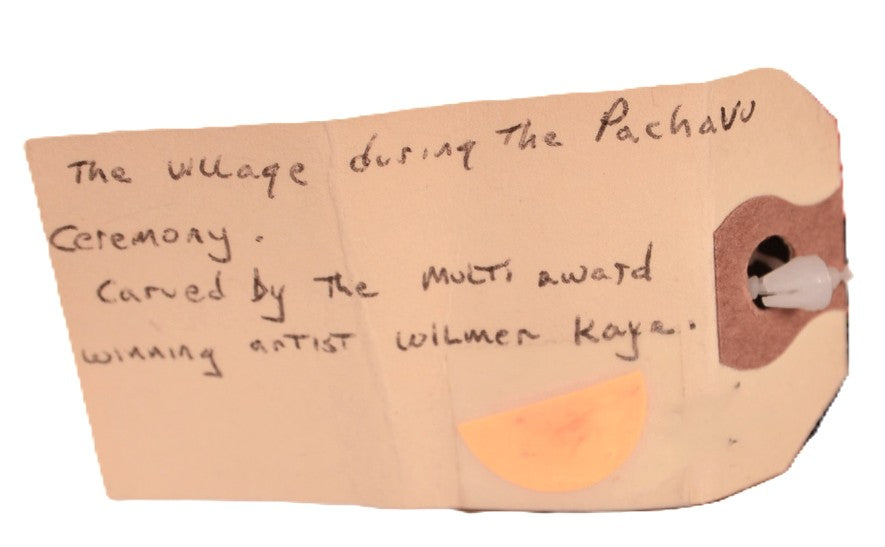 The village during The Pachavu
Ceremony.
Carved by The multi award
winning artist Wilmer Kaye.